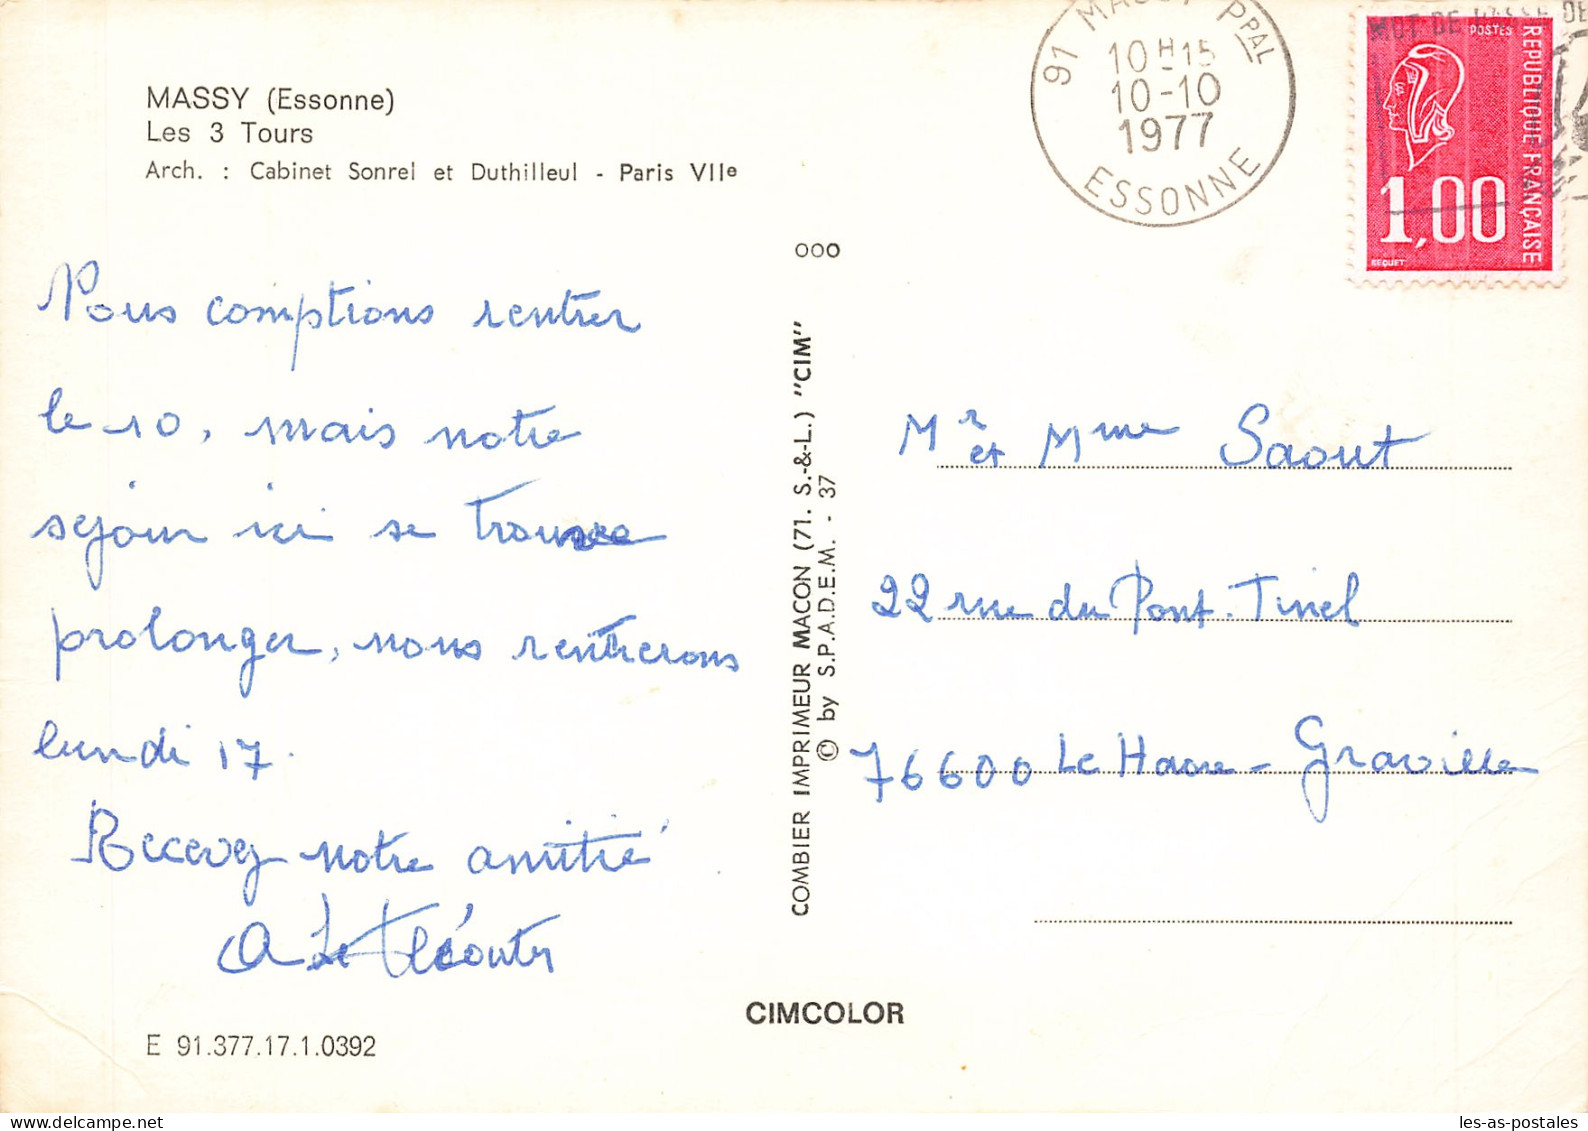 MASSY (Essonne)
Les 3 Tours
Arch. : Cabinet Sonrel et Duthilleul - Paris VIIe
91 MASSY PPAL
10H15
10-10
1977
ESSONNE
MOT DE PASSE DE
POSTES
REPUBLIQUE FRANÇAISE
1,00
BEQUET
Nous comptions rentrer
le 10, mais notre
sejour ici se trouve
prolonger, nous rentrerons
lundi 17.
Recevez notre amitié
A Le
ooo
COMBIER IMPRIMEUR MACON (71. S.-&-L.) "CIM"
© by S.P.A.D.E.M. - 37
Mr et Mme Saout
22 rue du Pont-Tinel
76600 Le Havre - Graville
CIMCOLOR
E 91.377.17.1.0392
les-as-postales